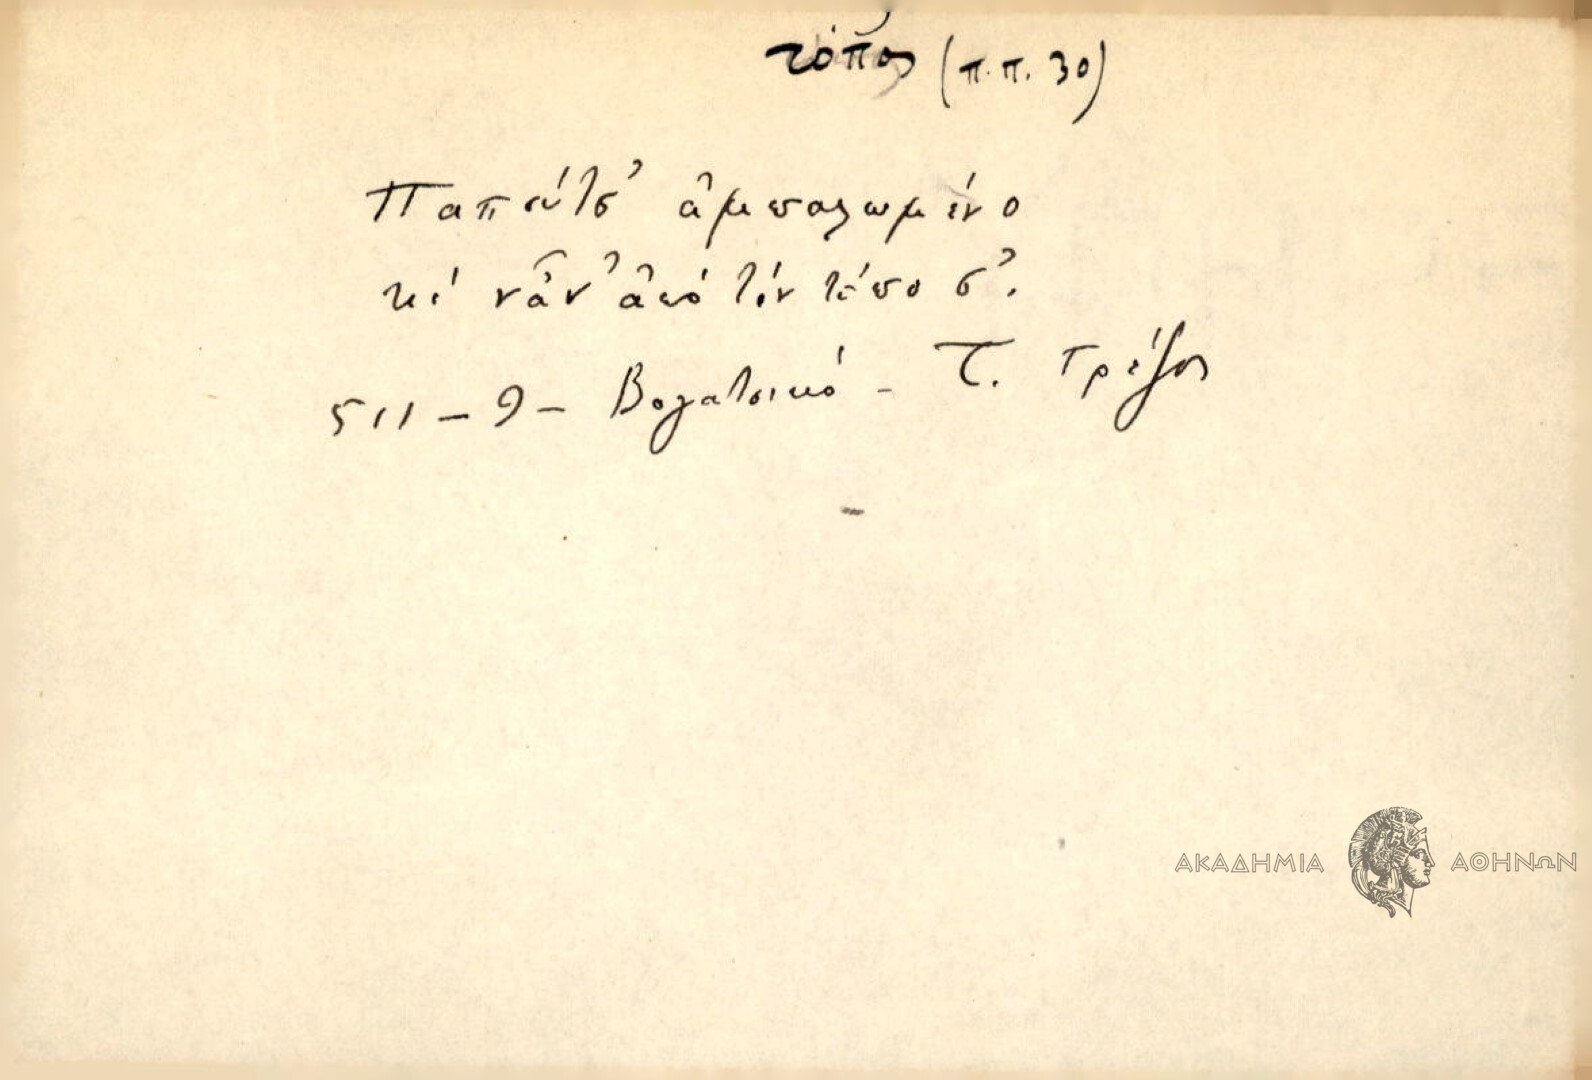 τόπος (π.π. 30)
Παπούτσ' ἀμπαλωμένο
κι νἆν' ἀπό τόν τόπο σ'.
511 - 9 - Βογατσικό - Τ. Γρέζος
ΑΚΑΔΗΜΙΑ ΑΘΗΝΩΝ